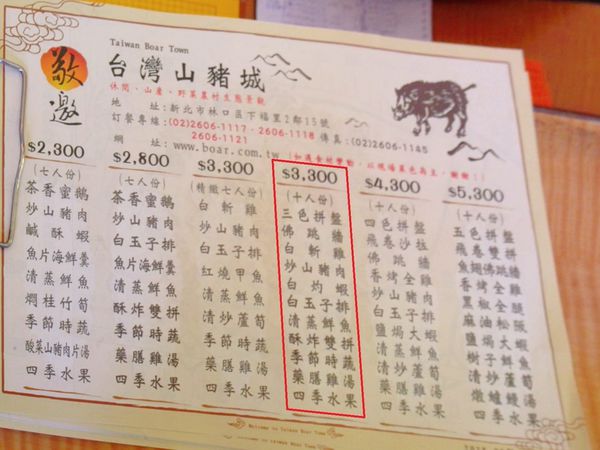 Taiwan Boar Town
敬邀
台灣山豬城
休閒、山產、野菜農村生態景觀
地 址:新北市林口區下福里2鄰15號
訂餐專線:(02)2606-1117、2606-1118 傳真:(02)2606-1145
2606-1121
網 址:www.boar.com.tw
(如遇食材變動,以現場菜色為主,謝謝!)
$2,300
(七人份)
茶香蜜鵝
炒山豬肉
鹹酥蝦
魚片海鮮羹
清蒸鮮魚
燜桂竹筍
季節時蔬
酸菜山豬肉片湯
四季水果
$2,800
(七人份)
茶香蜜鵝
炒山豬肉
白玉子排
魚片海鮮羹
清蒸鮮魚
酥炸雙拼
季節時蔬
藥膳雞湯
四季水果
$3,300
(精緻七人份)
白斬雞
炒山豬肉
白玉子排
紅燒甲魚
清蒸鮮魚
清炒蘆筍
季節時蔬
藥膳雞湯
四季水果
$3,300
(十人份)
三色拼盤
佛跳牆
白斬雞
炒山豬肉
白灼蝦
白玉子排
清蒸鮮魚
酥炸雙拼
季節時蔬
藥膳雞湯
四季水果
$4,300
(十人份)
四色拼盤
飛卷沙拉
佛跳牆
香烤全雞
炒山豬肉
白玉子排
鹽焗大蝦
清蒸鮮魚
清炒蘆筍
藥膳雞湯
四季水果
$5,300
(十人份)
五色拼盤
飛卷明蝦
翅佛跳牆
香烤全雞
黑椒全腿
麻油松阪
鹽焗大蝦
樹子鮮魚
清炒蘆筍
燉鱸鰻湯
四季水果
Welcome to Taiwan Boar Town